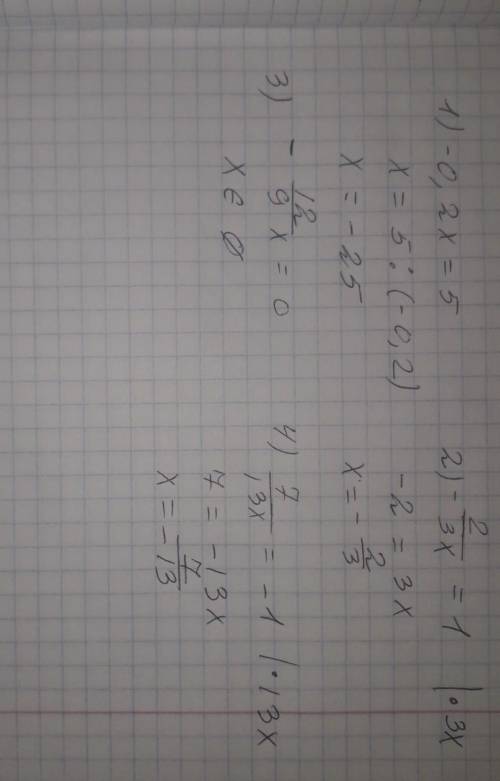 1) -0,2x = 5
x = 5 : (-0,2)
x = -25
2) - 2/3x = 1 | · 3x
-2 = 3x
x = - 2/3
3) - 12/9 x = 0
x ∈ ∅
4) 7/13x = -1 | · 13x
7 = -13x
x = - 7/13